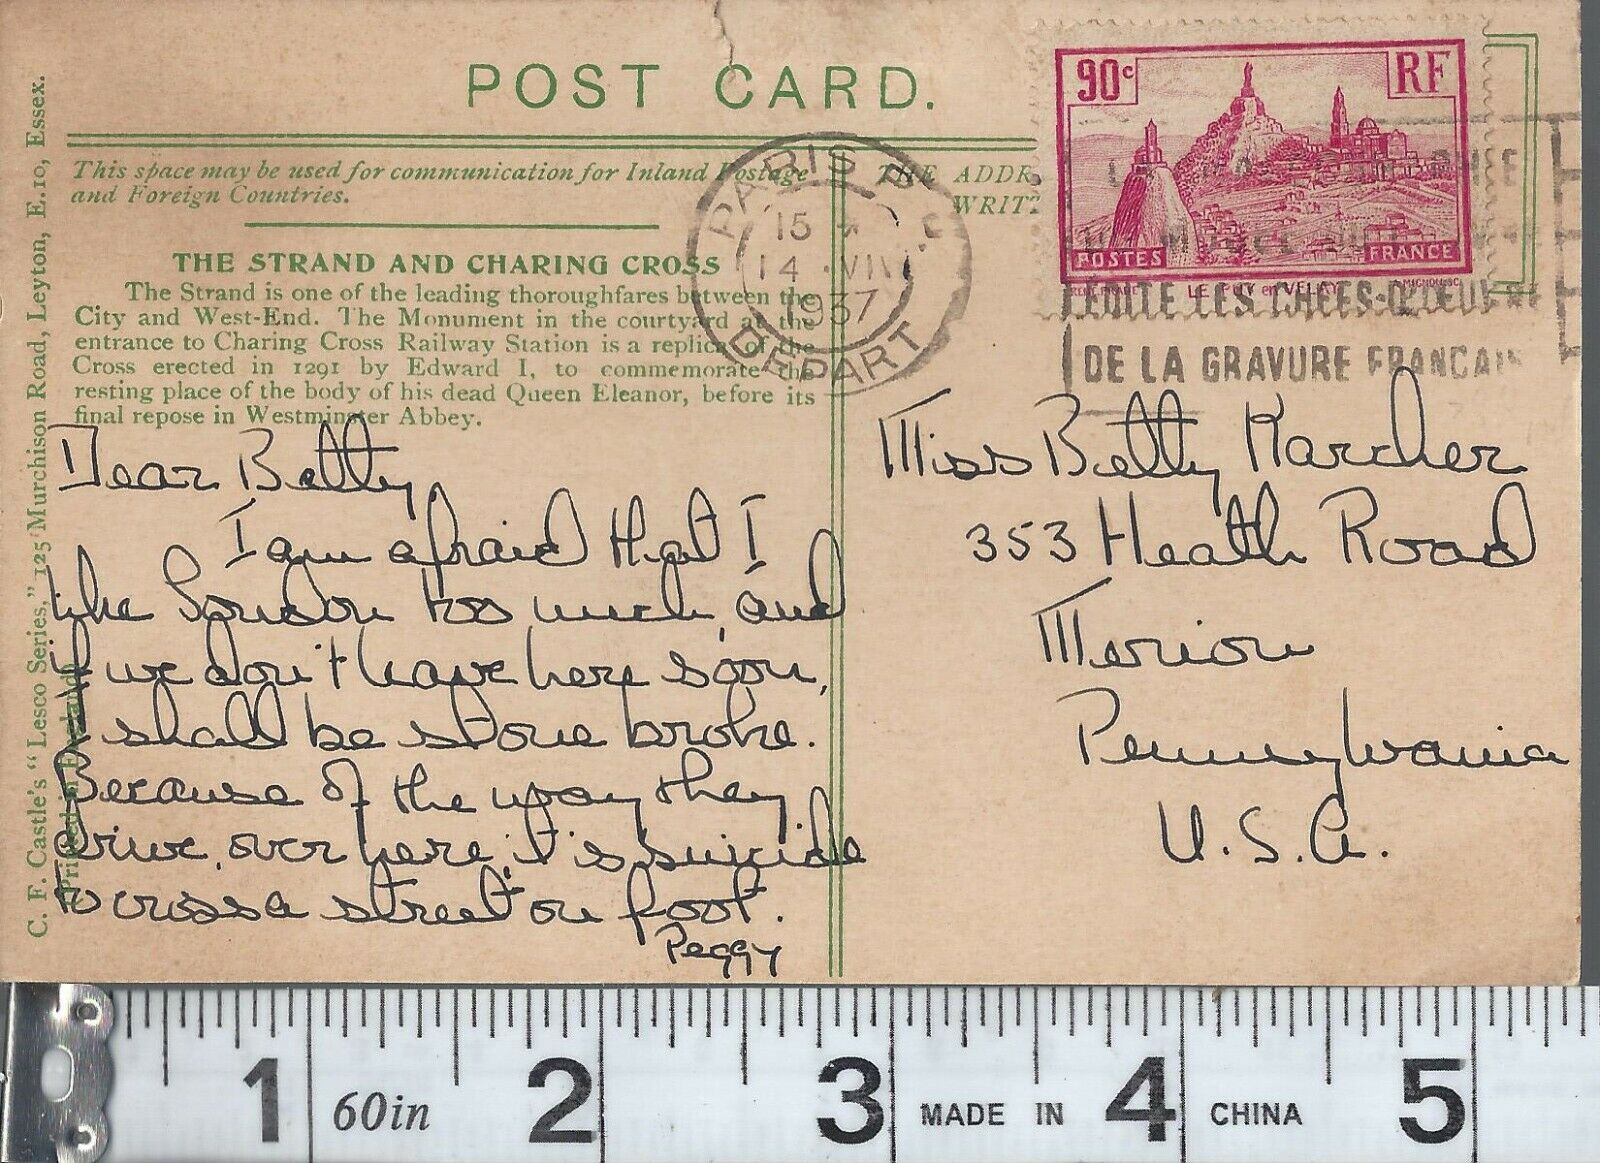 POST CARD.
This space may be used for communication for Inland Postage
and Foreign Countries.
THE ADDR
WRIT
THE STRAND AND CHARING CROSS
The Strand is one of the leading thoroughfares between the
City and West-End. The Monument in the courtyard at the
entrance to Charing Cross Railway Station is a replica of the
Cross erected in 1291 by Edward I, to commemorate the
resting place of the body of his dead Queen Eleanor, before its
final repose in Westminster Abbey.
C. F. Castle's "Lesco Series," 125 Murchison Road, Leyton, E.10, Essex.
(Printed in England)
Dear Betty
I am afraid that I
like London too much, and
if we don't leave here soon,
I shall be stone broke.
Because of the way they
drive, over here, it is suicide
to cross a street on foot.
Peggy
PARIS
15
14
1937
DEPART
90c
RF
POSTES
FRANCE
LE PUY en VELAY
EDITE LES CHEFS-D'OEUVRE
DE LA GRAVURE FRANCAIS
Miss Betty Karcher
353 Heath Road
Merion
Pennsylvania
U.S.A.
1 60in 2 3 MADE IN 4 CHINA 5